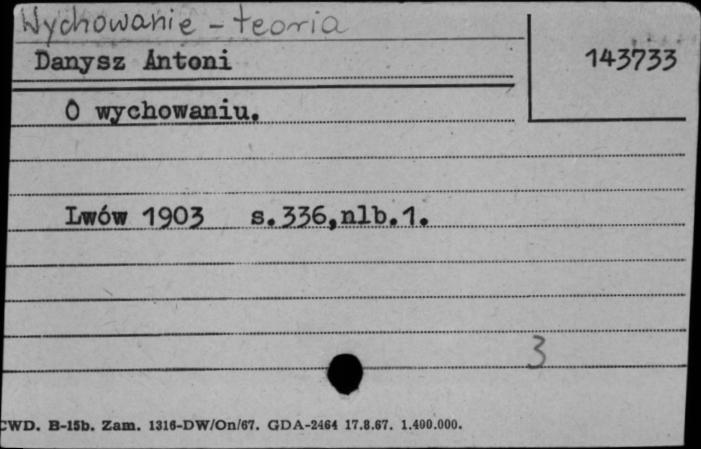 Wychowanie - teoria
Danysz Antoni
143733
O wychowaniu.
Lwów 1903 s.336,nlb.1.
3
CWD. B-15b. Zam. 1316-DW/On/67. GDA-2464 17.8.67. 1.400.000.